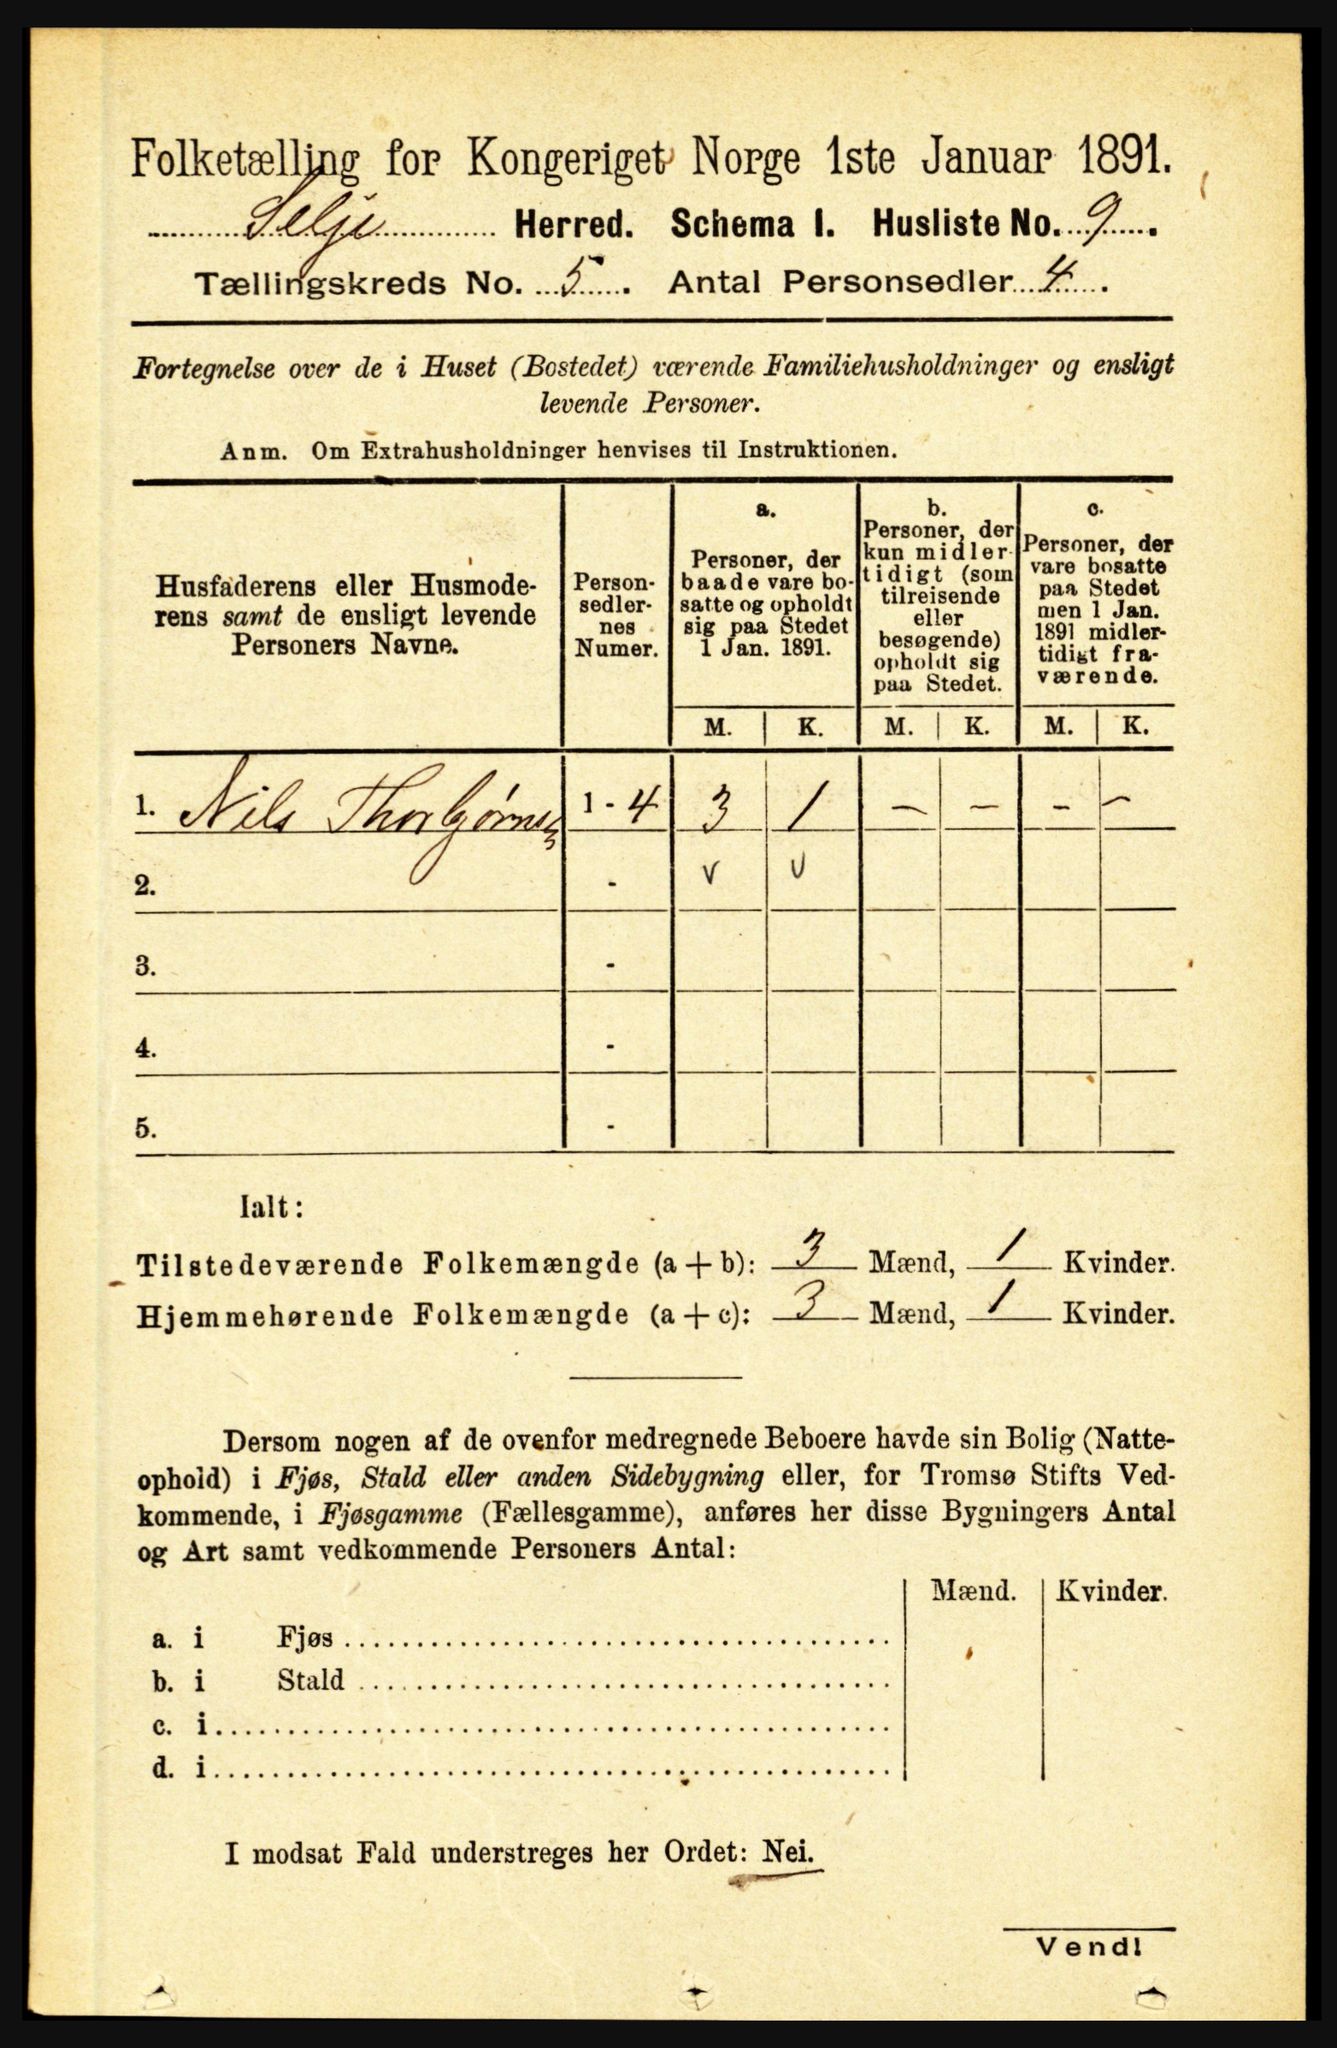 Folketælling for Kongeriget Norge 1ste Januar 1891.
Selje Herred. Schema I. Husliste No. 9.
Tællingskreds No. 5. Antal Personsedler 4.
Fortegnelse over de i Huset (Bostedet) værende Familiehusholdninger og ensligt
levende Personer.
Anm. Om Extrahusholdninger henvises til Instruktionen.
Husfaderens eller Husmode-
rens samt de ensligt levende
Personers Navne.
Person-
sedler-
nes
Numer.
a.
Personer, der
baade vare bo-
satte og opholdt
sig paa Stedet
1 Jan. 1891.
b.
Personer, der
kun midler-
tidigt (som
tilreisende
eller
besøgende)
opholdt sig
paa Stedet.
c.
Personer, der
vare bosatte
paa Stedet
men 1 Jan.
1891 midler-
tidigt fra-
værende.
M. K. M. K. M. K.
1. Nils Thorbjørnsen 1 - 4 3 1 - - - -
2. - v v
3. -
4. -
5. -
Ialt:
Tilstedeværende Folkemængde (a + b): 3 Mænd, 1 Kvinder.
Hjemmehørende Folkemængde (a + c): 3 Mænd, 1 Kvinder.
Dersom nogen af de ovenfor medregnede Beboere havde sin Bolig (Natte-
ophold) i Fjøs, Stald eller anden Sidebygning eller, for Tromsø Stifts Ved-
kommende, i Fjøsgamme (Fællesgamme), anføres her disse Bygningers Antal
og Art samt vedkommende Personers Antal:
Mænd. Kvinder.
a. i Fjøs
b. i Stald
c. i
d. i
I modsat Fald understreges her Ordet: Nei.
Vend!